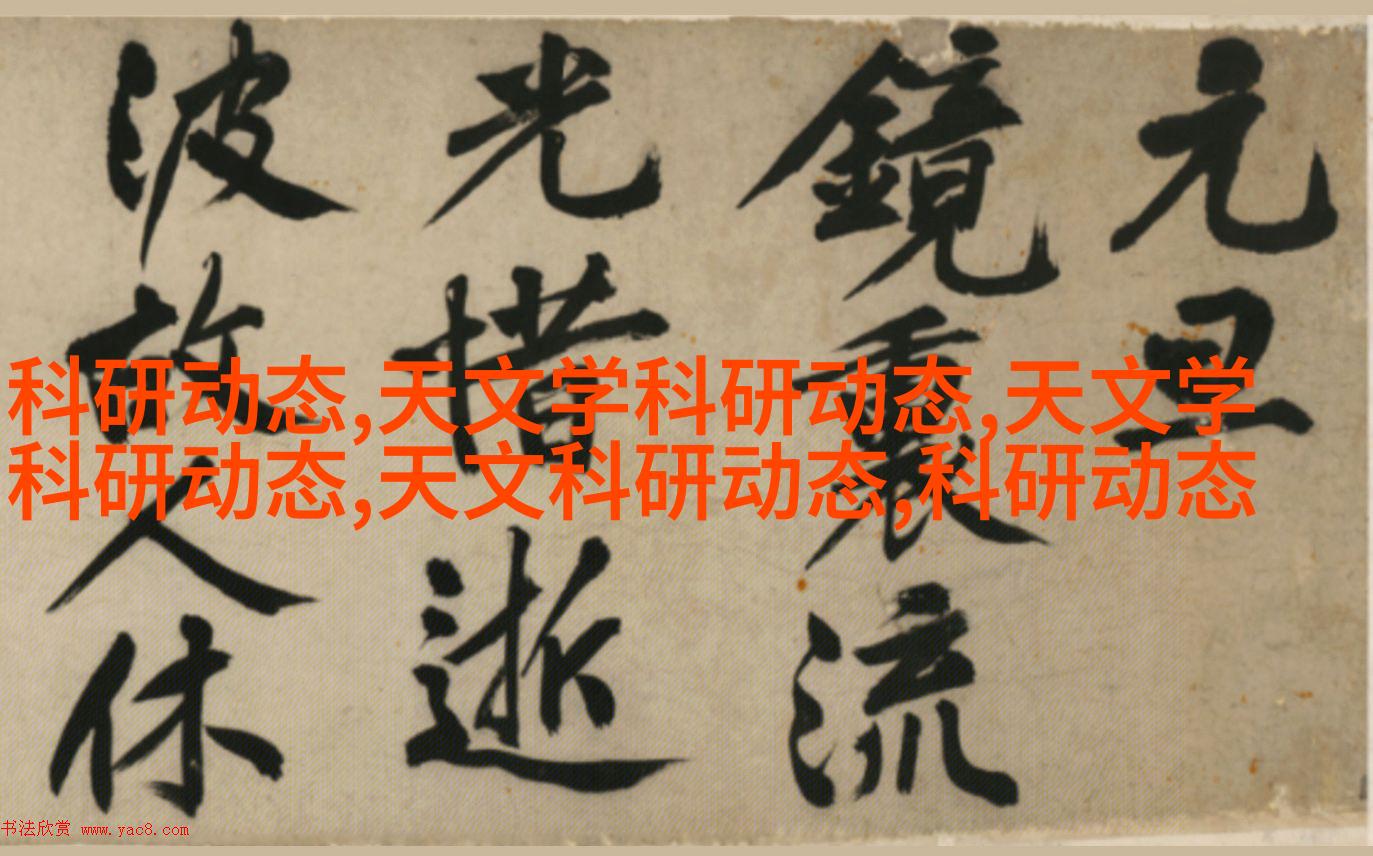 元丑
鏡裏流
光惜逝
波故人休
科研动态,天文学科研动态,天文学
科研动态,天文科研动态,科研动态
书法欣赏 www.yac8.com